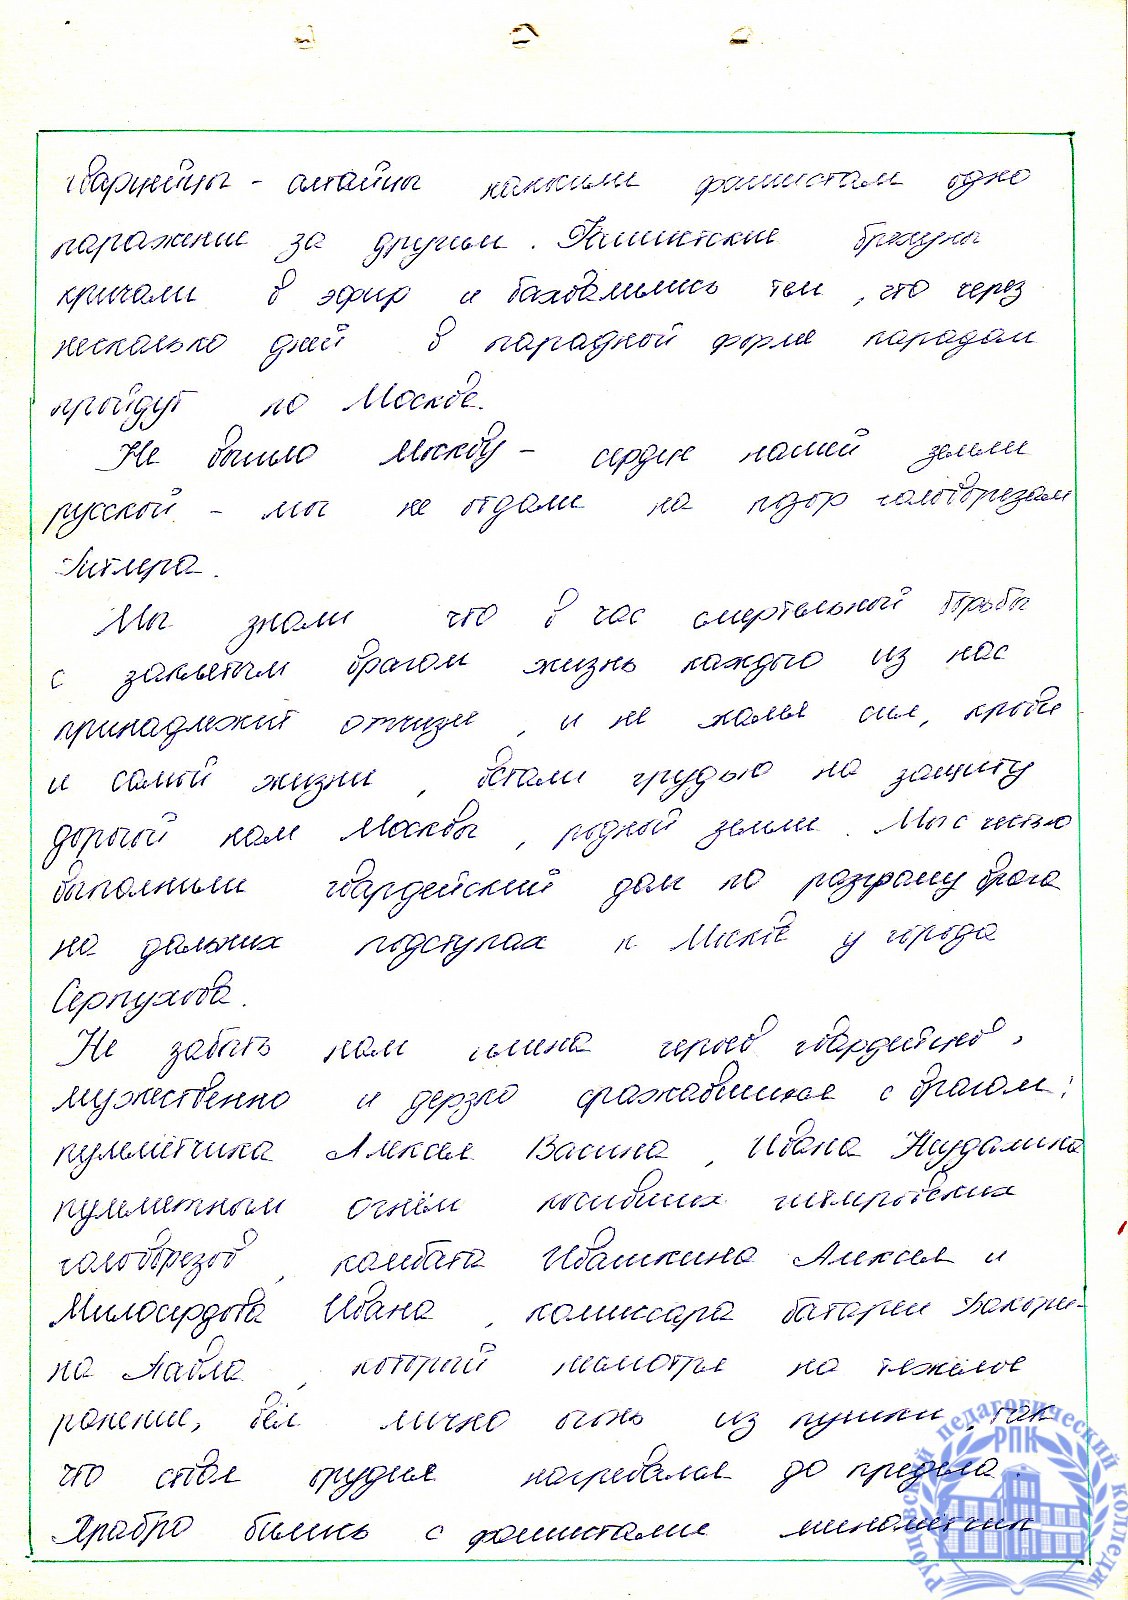 гвардейцы - алтайцы наносили фашистам одно
паражение за другим. Фашистские брехуны
кричали в эфир и бахвалились тем, что через
несколько дней в парадной форме парадом
пройдут по Москве.
Не вышло Москву - сердце нашей земли
русской - мы не отдали на позор головорезам
Гитлера.
Мы знали что в час смертельной борьбы
с заклятым врагом жизнь каждого из нас
принадлежит отчизне, и не жалея сил, крови
и самой жизни, встали грудью на защиту
дорогой нам Москвы, родной земли. Мы с честью
выполнили гвардейский долг по разгрому врага
на дальних подступах к Москве у города
Серпухова.
Не забыть нам имена героев гвардейцев,
мужественно и дерзко сражавшихся с врагом:
пулемётчика Алексея Васина, Ивана
пулеметным огнём косивших гитлеровских
головорезов, комбата Ивашкина Алексея и
Милосердова Ивана, комиссара батареи
на Павла, который несмотря на тяжёлое
ранение, вёл лично огонь из пушки, так
что ствол орудия нагревался до предела.
Храбро бились с фашистами минометчик
Рубцовский педагогический колледж
РПК